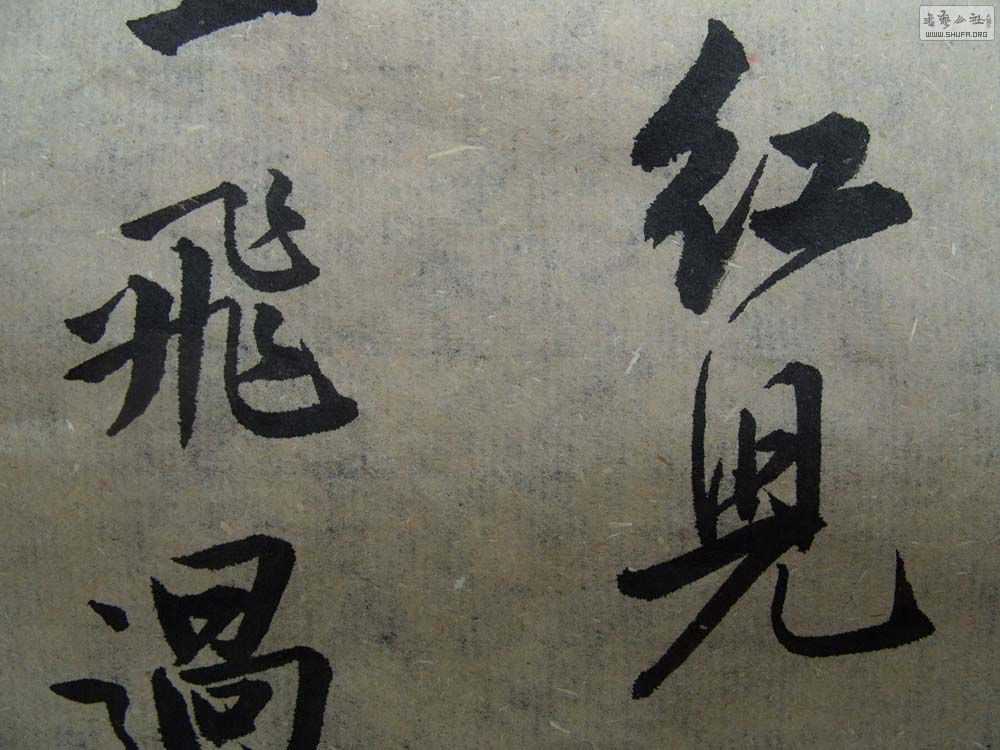 红見
飛過
书艺公社
WWW.SHUFA.ORG